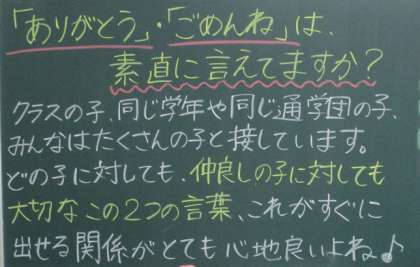 「ありがとう」・「ごめんね」は、
素直に言えてますか？
クラスの子、同じ学年や同じ通学団の子、
みんなはたくさんの子と接しています。
どの子に対しても、仲良しの子に対しても
大切なこの2つの言葉、これがすぐに
出せる関係がとても心地良いよね♪